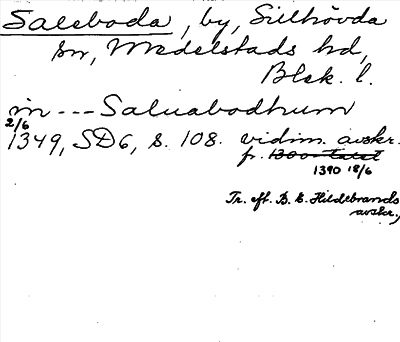 Saleboda, by, Sillhövda
sn, Medelstads hd,
Blek. l.
in --- Saluabodhum
2/6
1349, SD6, s. 108. vidim. avskr.
fr. 1300-talet
1390 18/6
Tr. eft. B. E. Hildebrands
avskr.,